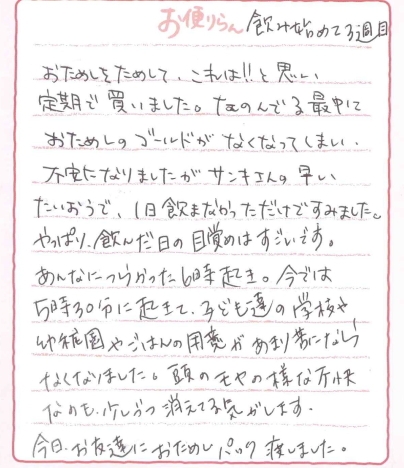 お便りらん 飲み始めて3週目
おためしをためして、これは!!と思い
定期で買いました。でものんでる最中に
おためしのゴールドがなくなってしまい、
不安になりましたがサンキエムの早い
たいおうで、1日飲まなかっただけですみました。
やっぱり、飲んだ日の目覚めはすごいです。
あんなにつらかった6時起き。今では
5時30分に起きて、子ども達の学校や
幼稚園やごはんの用意があまり苦になら
なくなりました。頭のモヤの様な不快
なのも、少しづつ消えてる気がします。
今日、お友達におためしパック渡しました。